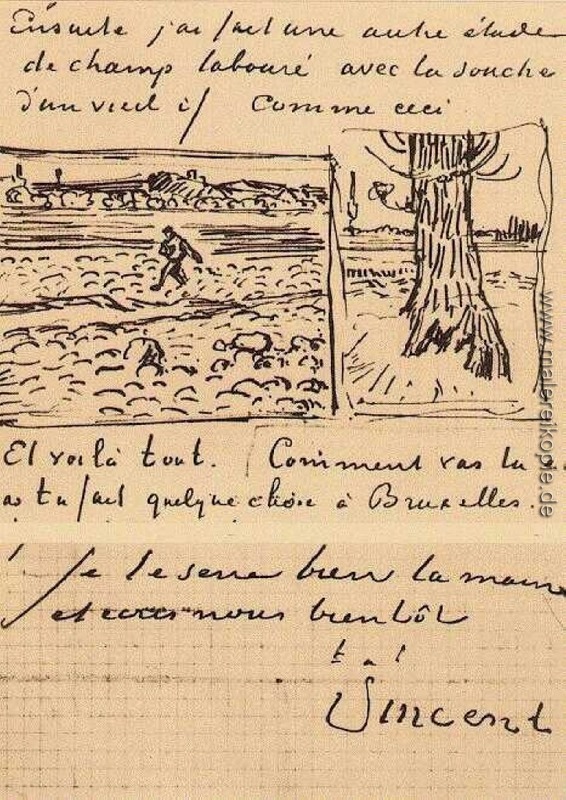 Ensuite j'ai fait une autre étude
de champ labouré avec la souche
d'un vieil if comme ceci
Et voilà tout. Comment vas tu e
as tu fait quelque chose à Bruxelles.
Je te serre bien la main
et écris nous bientôt
t. à t.
Vincent
www.malereikopie.de